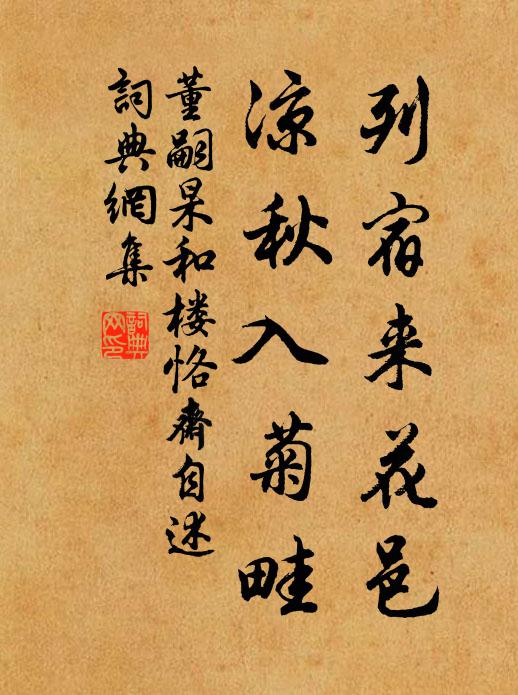 列宿来花邑
凉秋入菊畦
董嗣杲和楼恪齋自述
詞典網集
詞典
网印